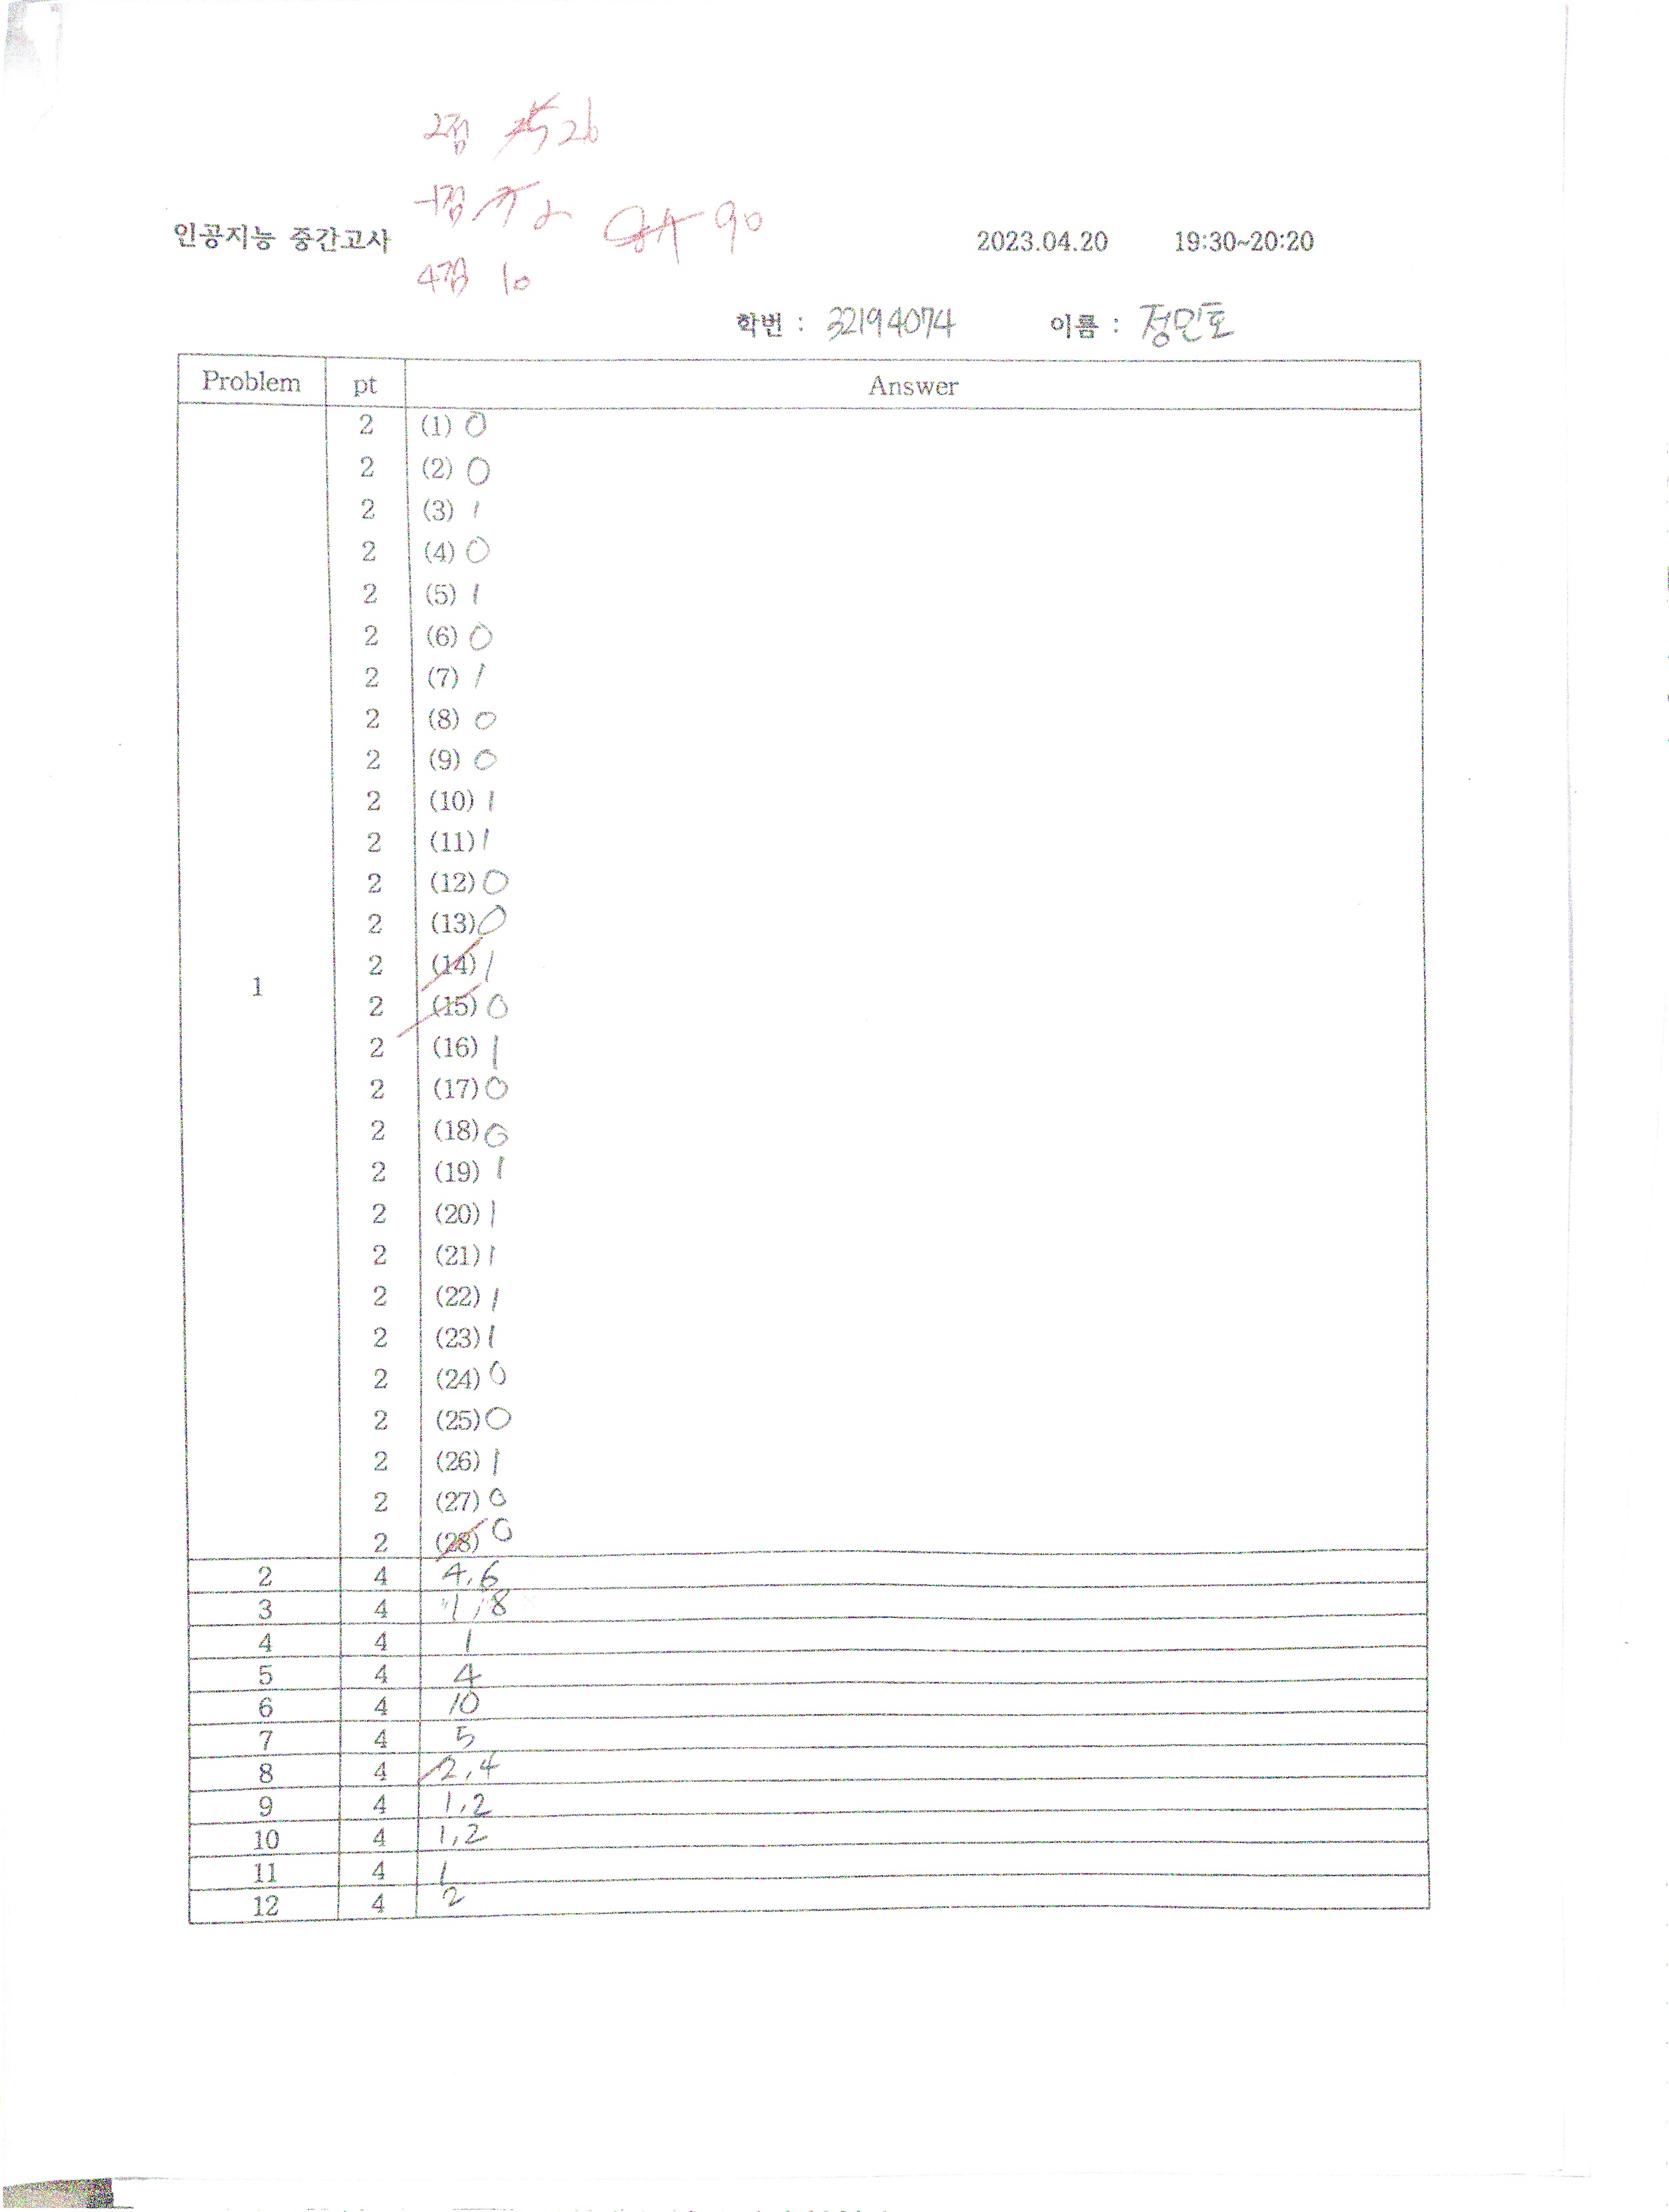 2점 26
-1점 2
90
인공지능 중간고사 2023.04.20 19:30~20:20
4점 10
학번 : 32194074 이름 : 정민호
Problem pt Answer
1
2 (1) 0
2 (2) 0
2 (3) 1
2 (4) 0
2 (5) 1
2 (6) 0
2 (7) 1
2 (8) 0
2 (9) 0
2 (10) 1
2 (11) 1
2 (12) 0
2 (13) 0
2 (14) 1
2 (15) 0
2 (16) 1
2 (17) 0
2 (18) 0
2 (19) 1
2 (20) 1
2 (21) 1
2 (22) 1
2 (23) 1
2 (24) 0
2 (25) 0
2 (26) 1
2 (27) 0
2 (28) 0
2 4 4,6
3 4 1,8
4 4 1
5 4 4
6 4 10
7 4 5
8 4 2,4
9 4 1,2
10 4 1,2
11 4 1
12 4 2